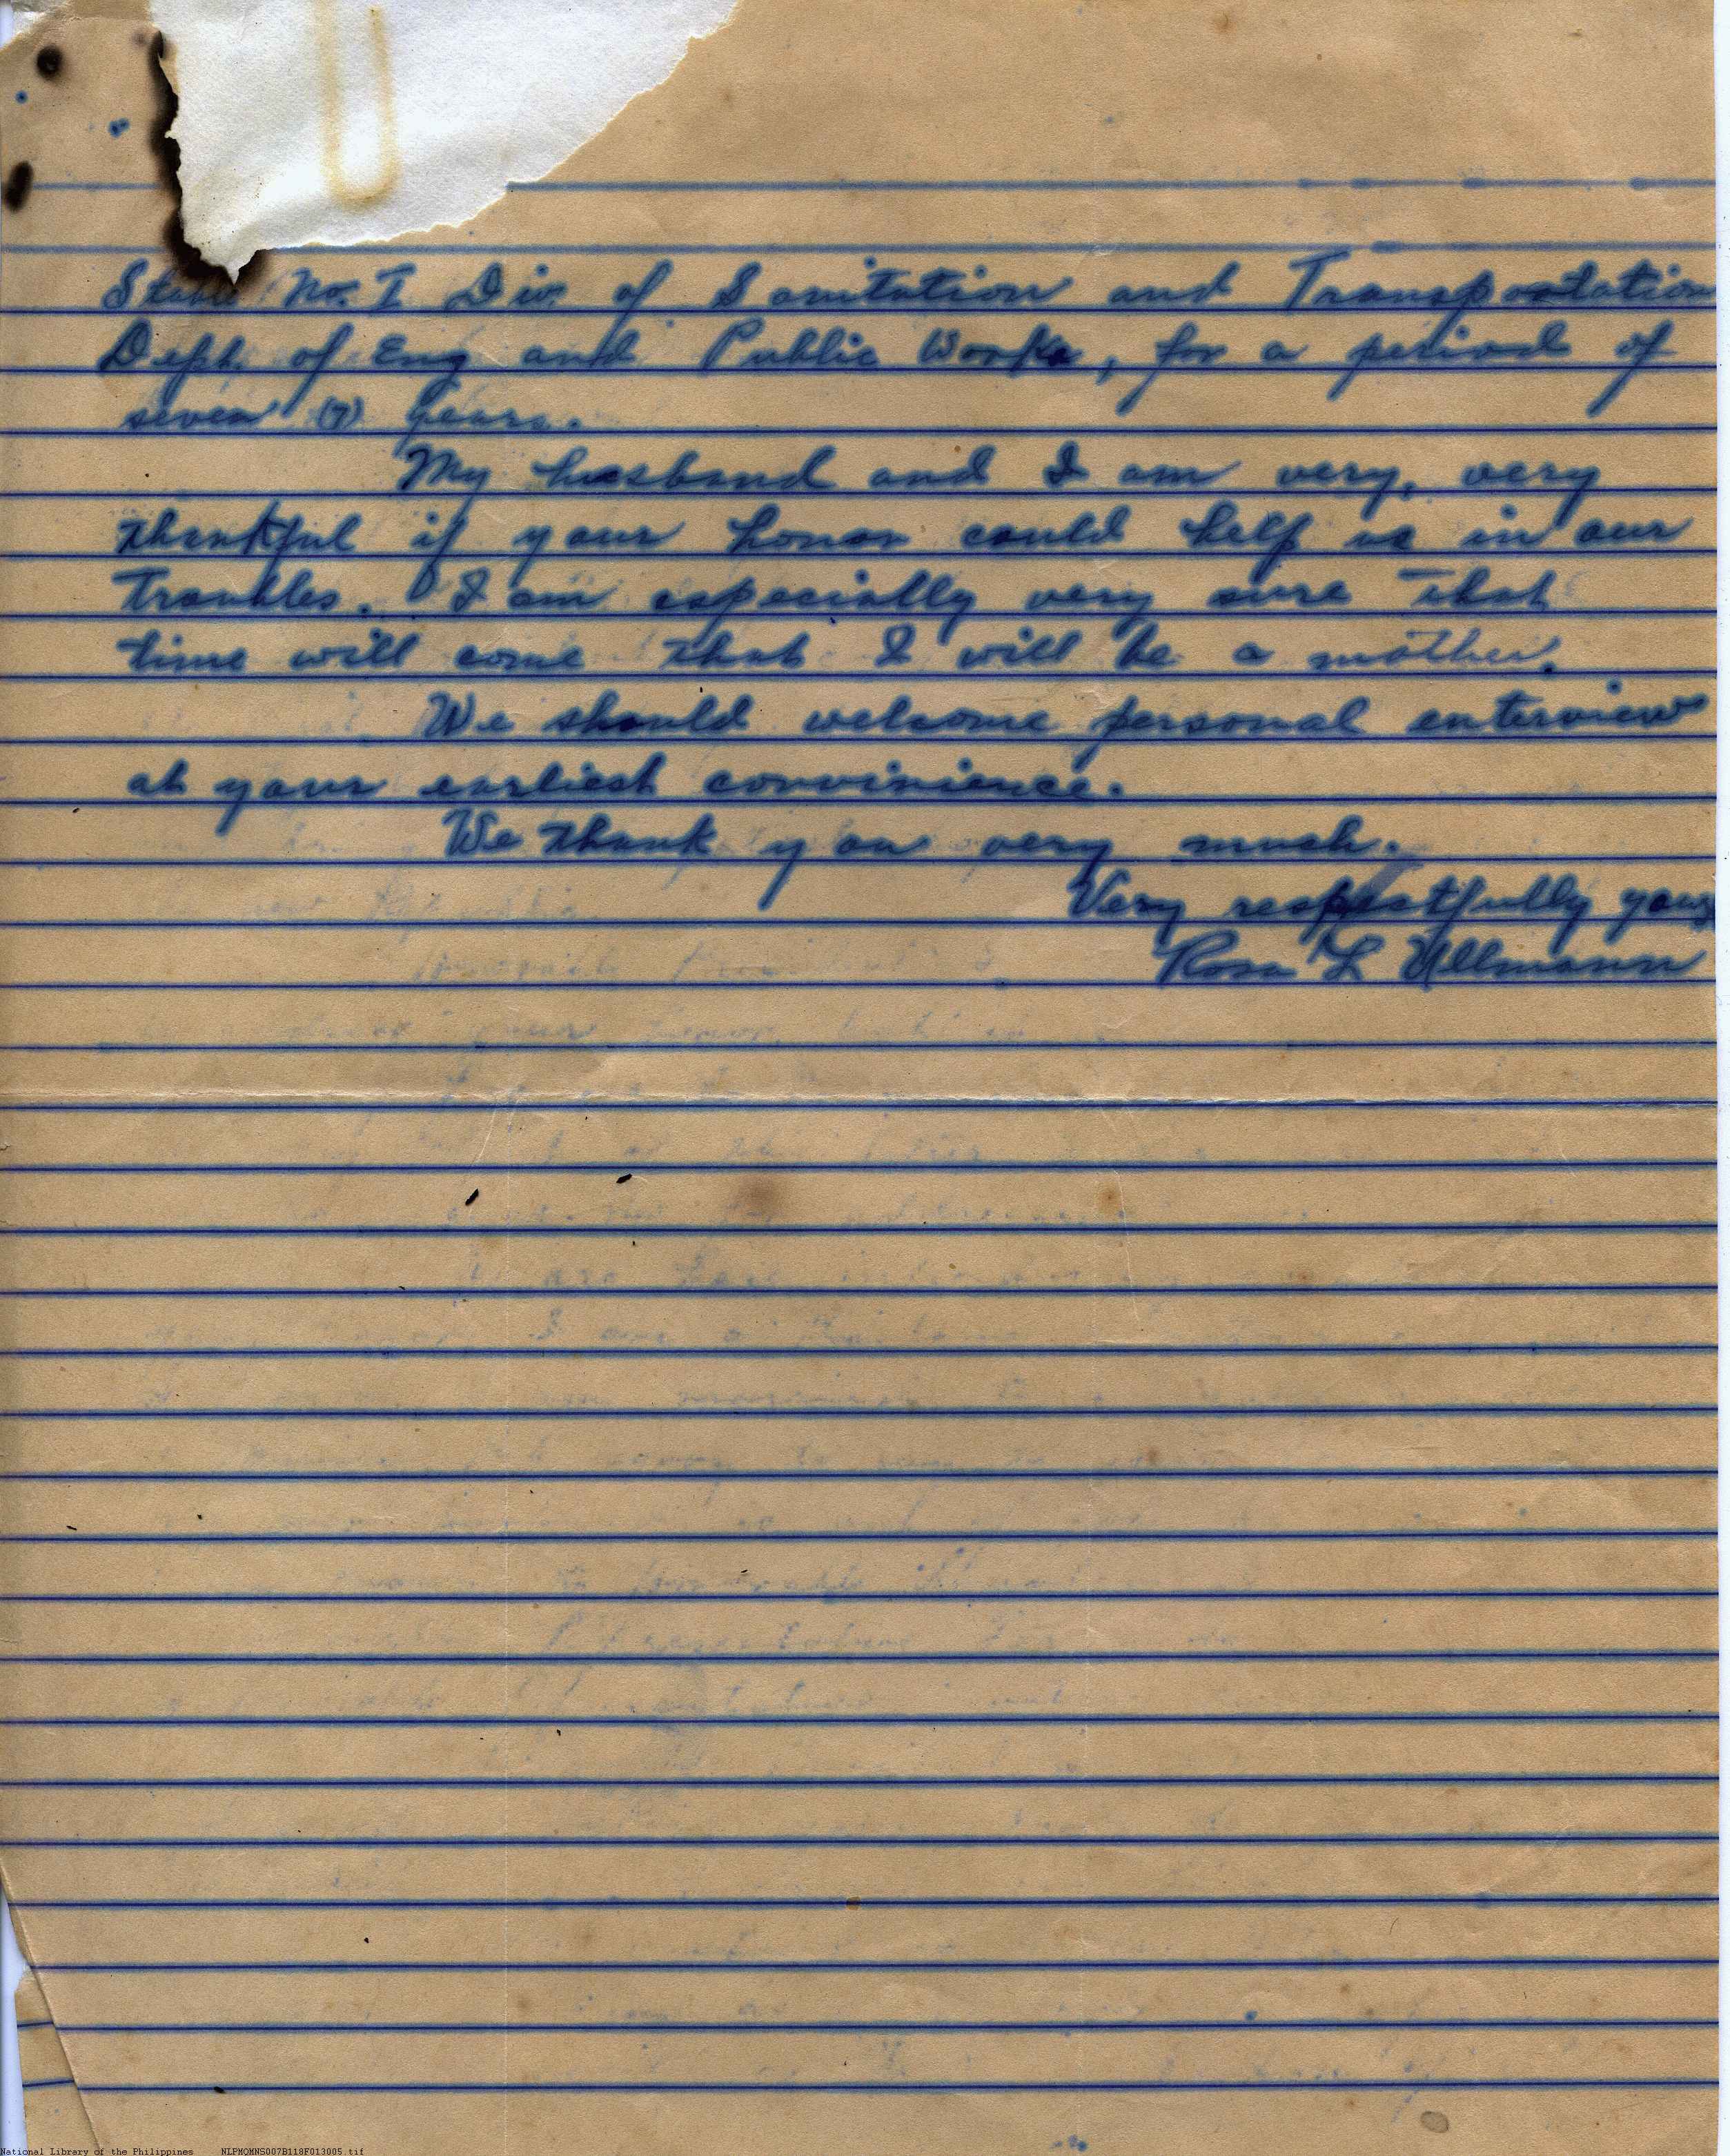 Stable No. I Div. of Sanitation and Transportation
Dept. of Eng and Public Works, for a period of
seven (7) years.
My husband and I am very, very
thankful if your honor could help us in our
troubles. I am especially very sure that
time will come that I will be a mother.
We should welcome personal enterview
at your earliest convinience.
We thank you very much.
Very respectfully yours
Rosa L Ullmann
National Library of the Philippines NLPMQMNS007B118F013005.tif